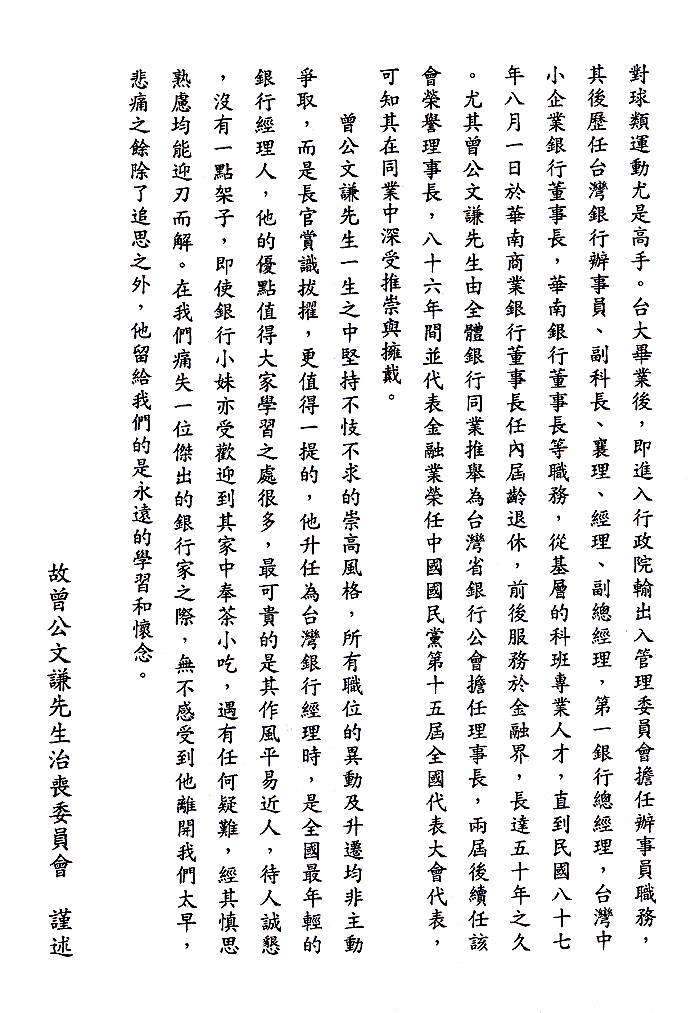 對球類運動尤是高手。台大畢業後，即進入行政院輸出入管理委員會擔任辦事員職務，
其後歷任台灣銀行辦事員、副科長、襄理、經理、副總經理，第一銀行總經理，台灣中
小企業銀行董事長，華南銀行董事長等職務，從基層的科班專業人才，直到民國八十七
年八月一日於華南商業銀行董事長任內屆齡退休，前後服務於金融界，長達五十年之久
。尤其曾公文謙先生由全體銀行同業推舉為台灣省銀行公會擔任理事長，兩屆後續任該
會榮譽理事長，八十六年間並代表金融業榮任中國國民黨第十五屆全國代表大會代表，
可知其在同業中深受推崇與擁戴。
曾公文謙先生一生之中堅持不忮不求的崇高風格，所有職位的異動及升遷均非主動
爭取，而是長官賞識拔擢，更值得一提的，他升任為台灣銀行經理時，是全國最年輕的
銀行經理人，他的優點值得大家學習之處很多，最可貴的是其作風平易近人，待人誠懇
，沒有一點架子，即使銀行小妹亦受歡迎到其家中奉茶小吃，遇有任何疑難，經其慎思
熟慮均能迎刃而解。在我們痛失一位傑出的銀行家之際，無不感受到他離開我們太早，
悲痛之餘除了追思之外，他留給我們的是永遠的學習和懷念。
故曾公文謙先生治喪委員會　謹述